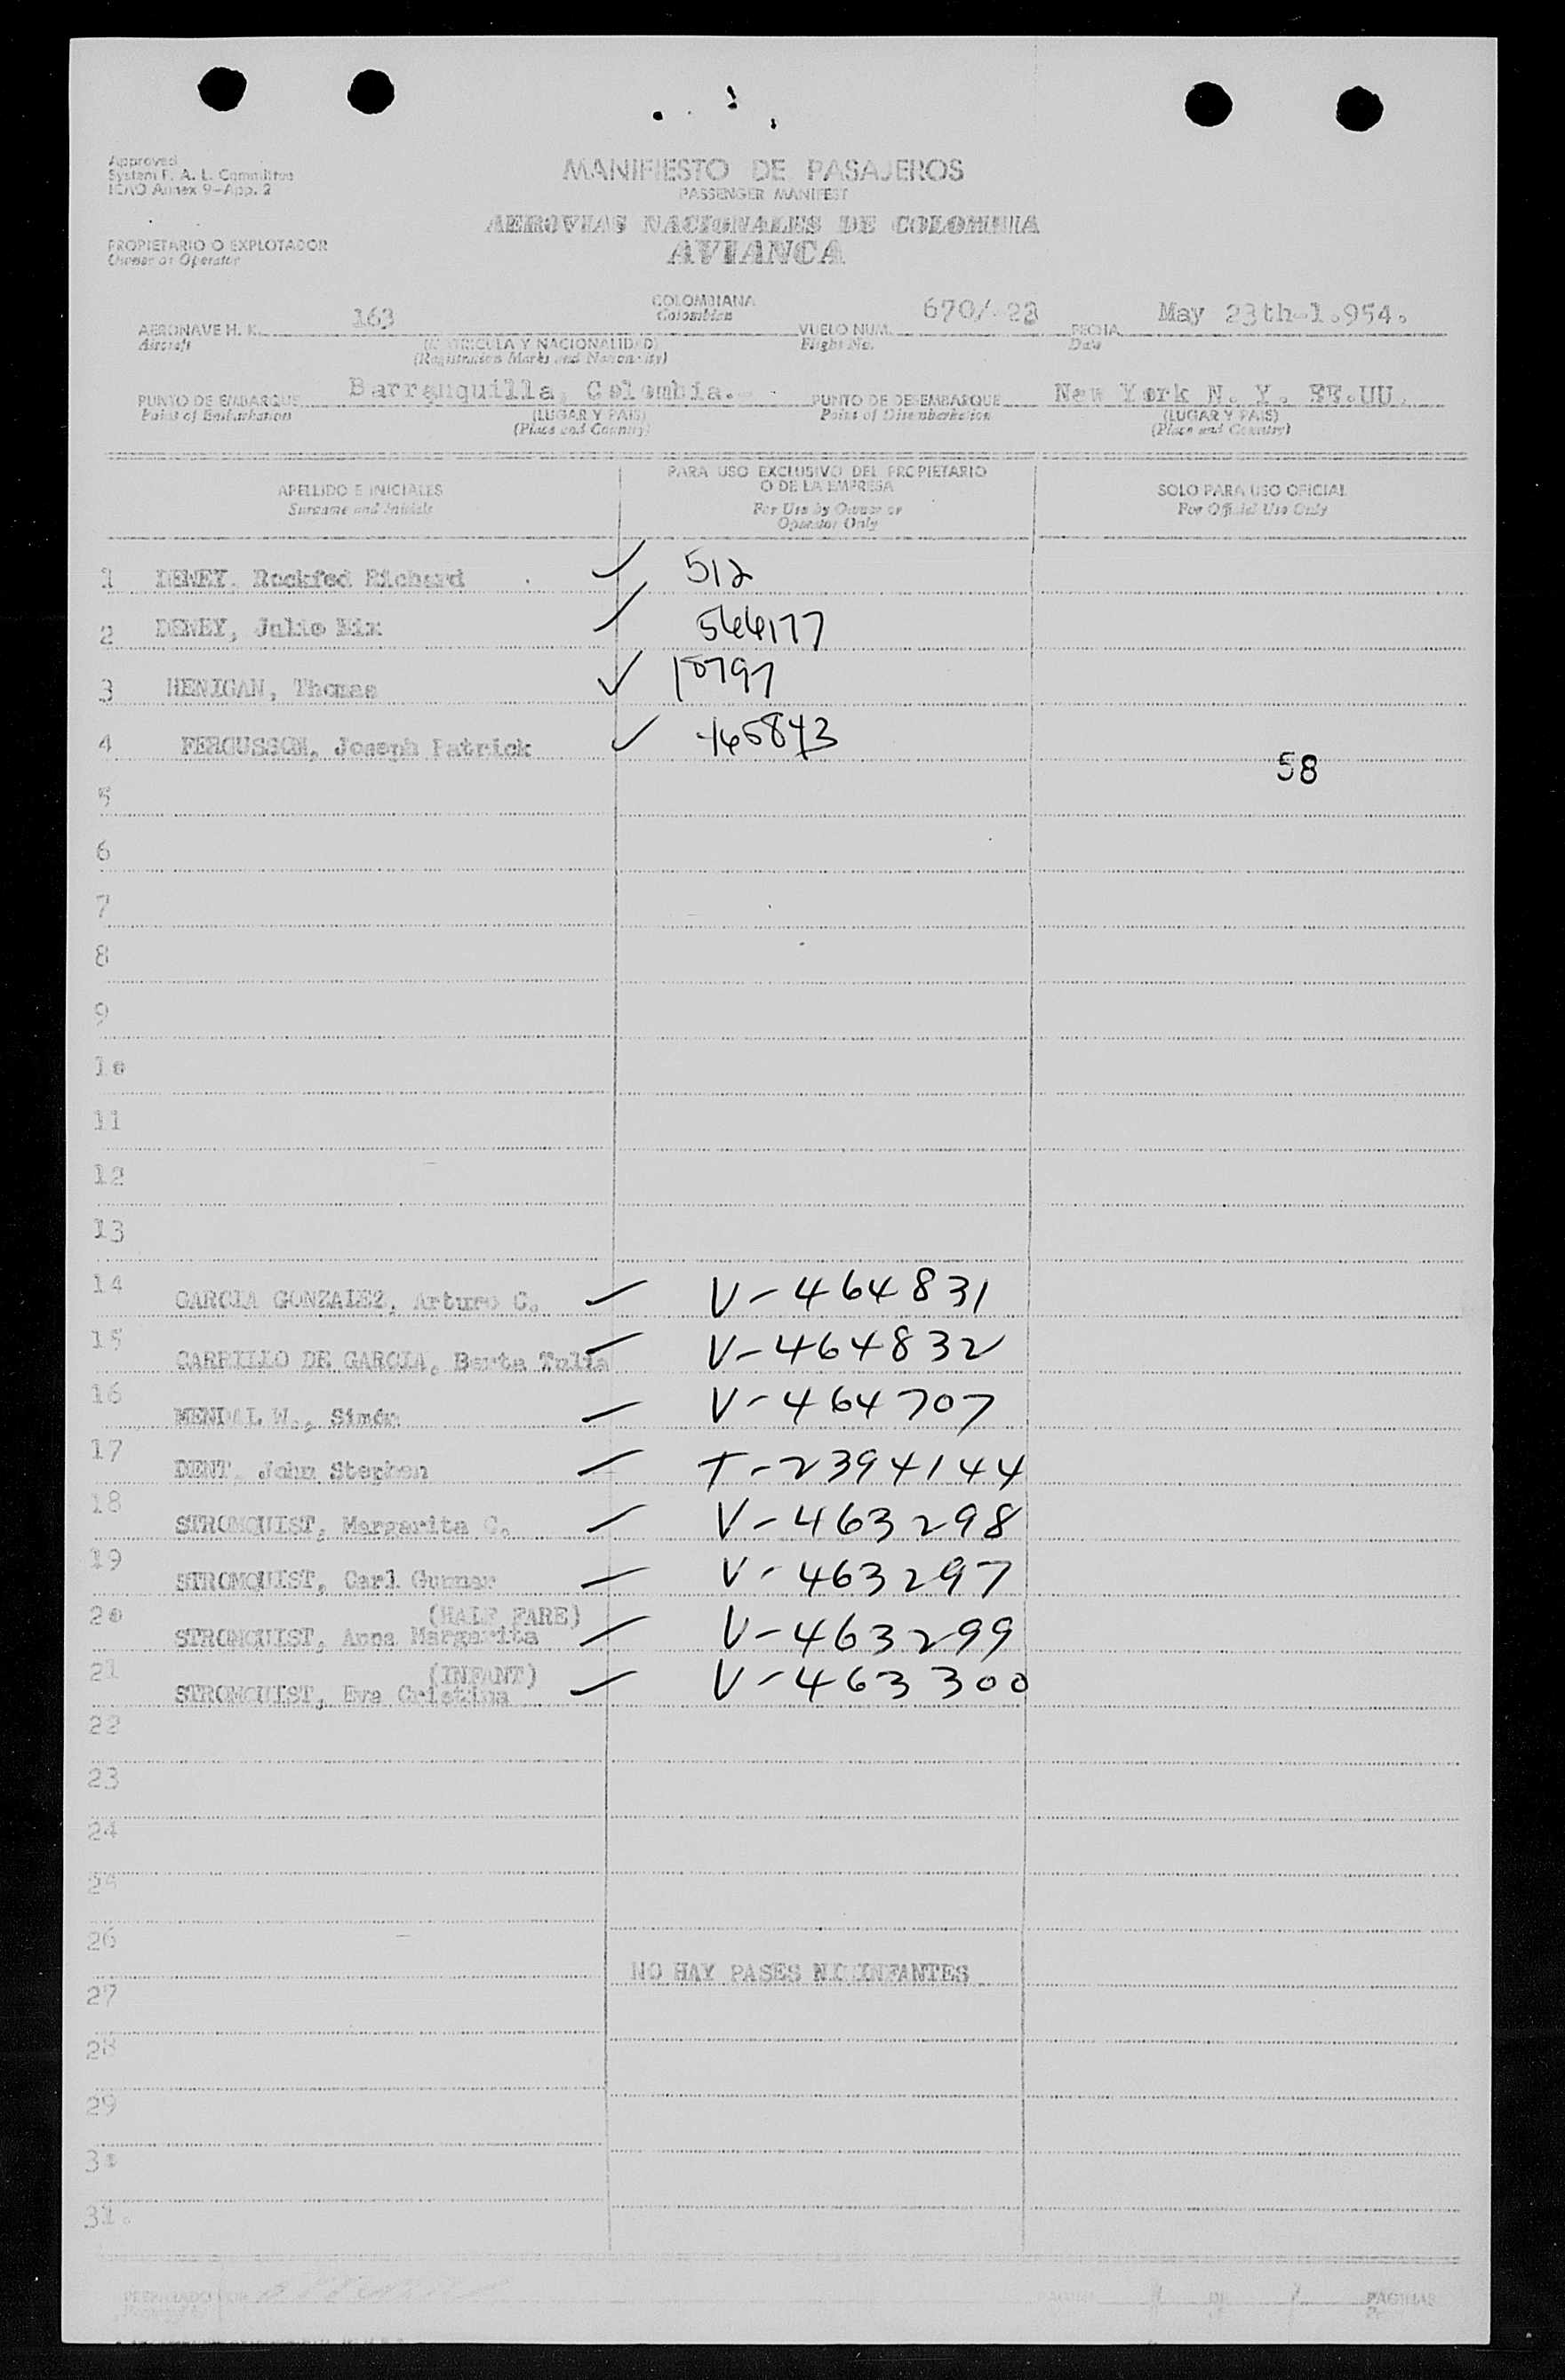 Approved
System F. A. L. Committee
ICAO Annex 9-App. 2
MANIFIESTO DE PASAJEROS
PASSENGER MANIFEST
AEROVIAS NACIONALES DE COLOMBIA
AVIANCA
PROPIETARIO O EXPLOTADOR
Owner or Operator
AERONAVE H. K. 163 COLOMBIANA VUELO NUM. 670/-23 FECHA May 23th-1.954.
Aircraft (MATRICULA Y NACIONALIDAD) Colombian Flight No. Date
(Registration Marks and Nationality)
PUNTO DE EMBARQUE Barranquilla, Colombia. PUNTO DE DESEMBARQUE New York N. Y. EE.UU.
Point of Embarkation (LUGAR Y PAIS) Point of Disembarkation (LUGAR Y PAIS)
(Place and Country) (Place and Country)
APELLIDO E INICIALES PARA USO EXCLUSIVO DEL PROPIETARIO O DE LA EMPRESA SOLO PARA USO OFICIAL
Surname and Initials For Use by Owner or Operator Only For Official Use Only
1 DEWEY. Rockfed Richard 512
2 DEWEY, Julie Mix
3 HENIGAN, Thomas 18797
4 FERGUSSON, Joseph Patrick
58
5
6
7
8
9
10
11
12
13
14 GARCIA GONZALEZ, Arturo C. V-464831
15 CARRILLO DE GARCIA, Berta Tulia V-464832
16 MENDAL W., Simón V-464707
17 DENT, John Stephen T-2394144
18 STROMQUIST, Margarita C. V-463298
19 STROMQUIST, Carl Gunnar V-463297
20 (HALF FARE)
STROMQUIST, Anna Margarita V-463299
21 (INFANT)
STROMQUIST, Eva Cristina V-463300
22
23
24
25
26
NO HAY PASES NI INFANTES
27
28
29
30
31.
PREPARADO POR
PAGINAS